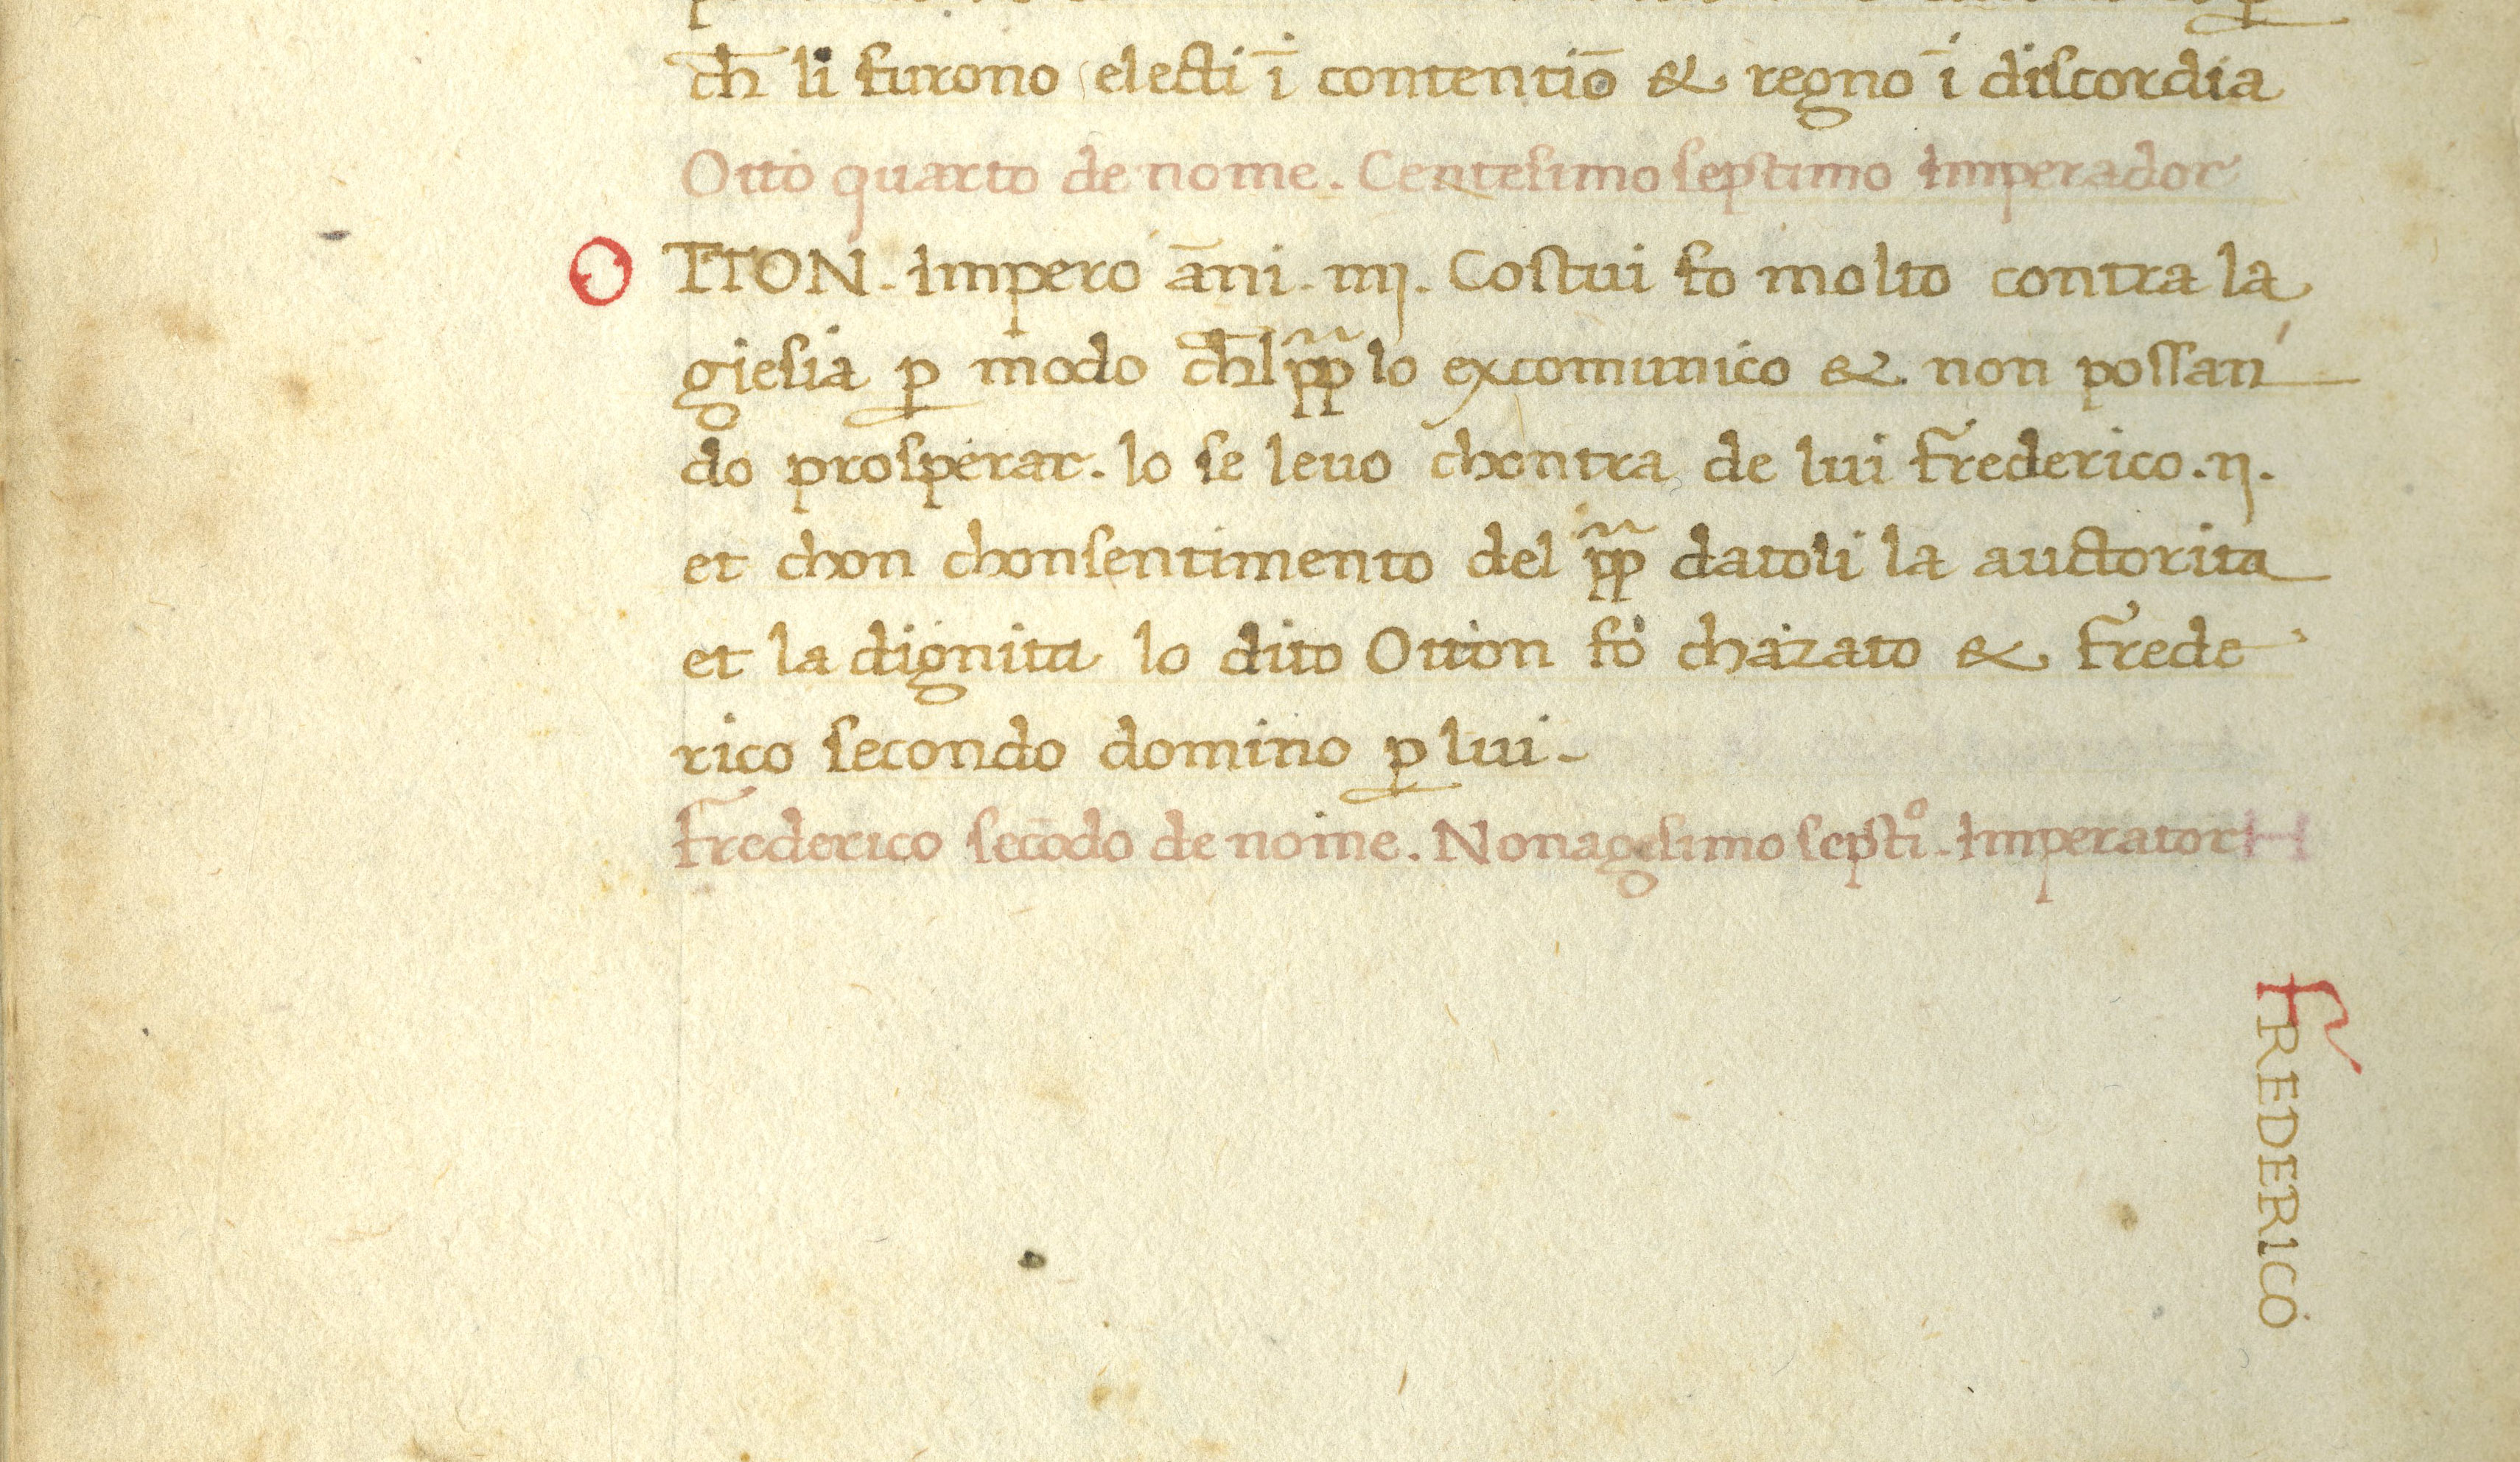 ch̄ li furono electi ī contentiō & regno ī discordia
Otto quarto de nome. Centesimo septimo Imperador
OTTON. Impero āni. iiij. Costui fo molto contra la
giesia ꝑ modo ch̄l pp̄ lo excomunico & non possan
do prosperar. lo se leuo chontra de lui Frederico. ij.
et chon chonsentimento del pp̄ datoli la auctorita
et la dignita lo dito Otton fo chazato & Frede
rico secondo domino ꝑ lui.
Frederico secōdo de nome. Nonagesimo septiͦ. Imperator
FREDERICO